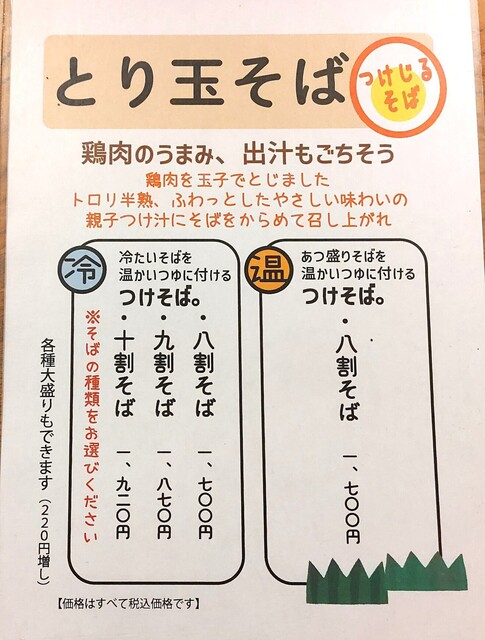 とり玉そば
つけじる
そば
鶏肉のうまみ、出汁もごちそう
鶏肉を玉子でとじました
トロリ半熟、ふわっとしたやさしい味わいの
親子つけ汁にそばをからめて召し上がれ
冷
冷たいそばを
温かいつゆに付ける
つけそば。
・八割そば 一、七〇〇円
・九割そば 一、八七〇円
・十割そば 一、九二〇円
※そばの種類をお選びください
温
あつ盛りそばを
温かいつゆに付ける
つけそば。
・八割そば 一、七〇〇円
各種大盛りもできます（220円増し）
【価格はすべて税込価格です】